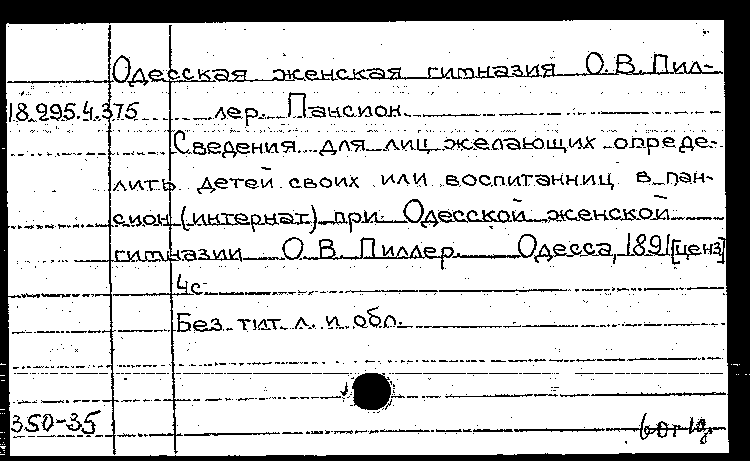 Одесская женская гимназия О.В. Пил-
18.995.4.375 лер. Пансион.
Сведения для лиц желающих опреде-
лить детей своих или воспитанниц в пан-
сион (интернат) при Одесской женской
гимназии О.В. Пиллер. Одесса, 1891 [ценз]
4с.
Без тит. л. и обл.
350-35